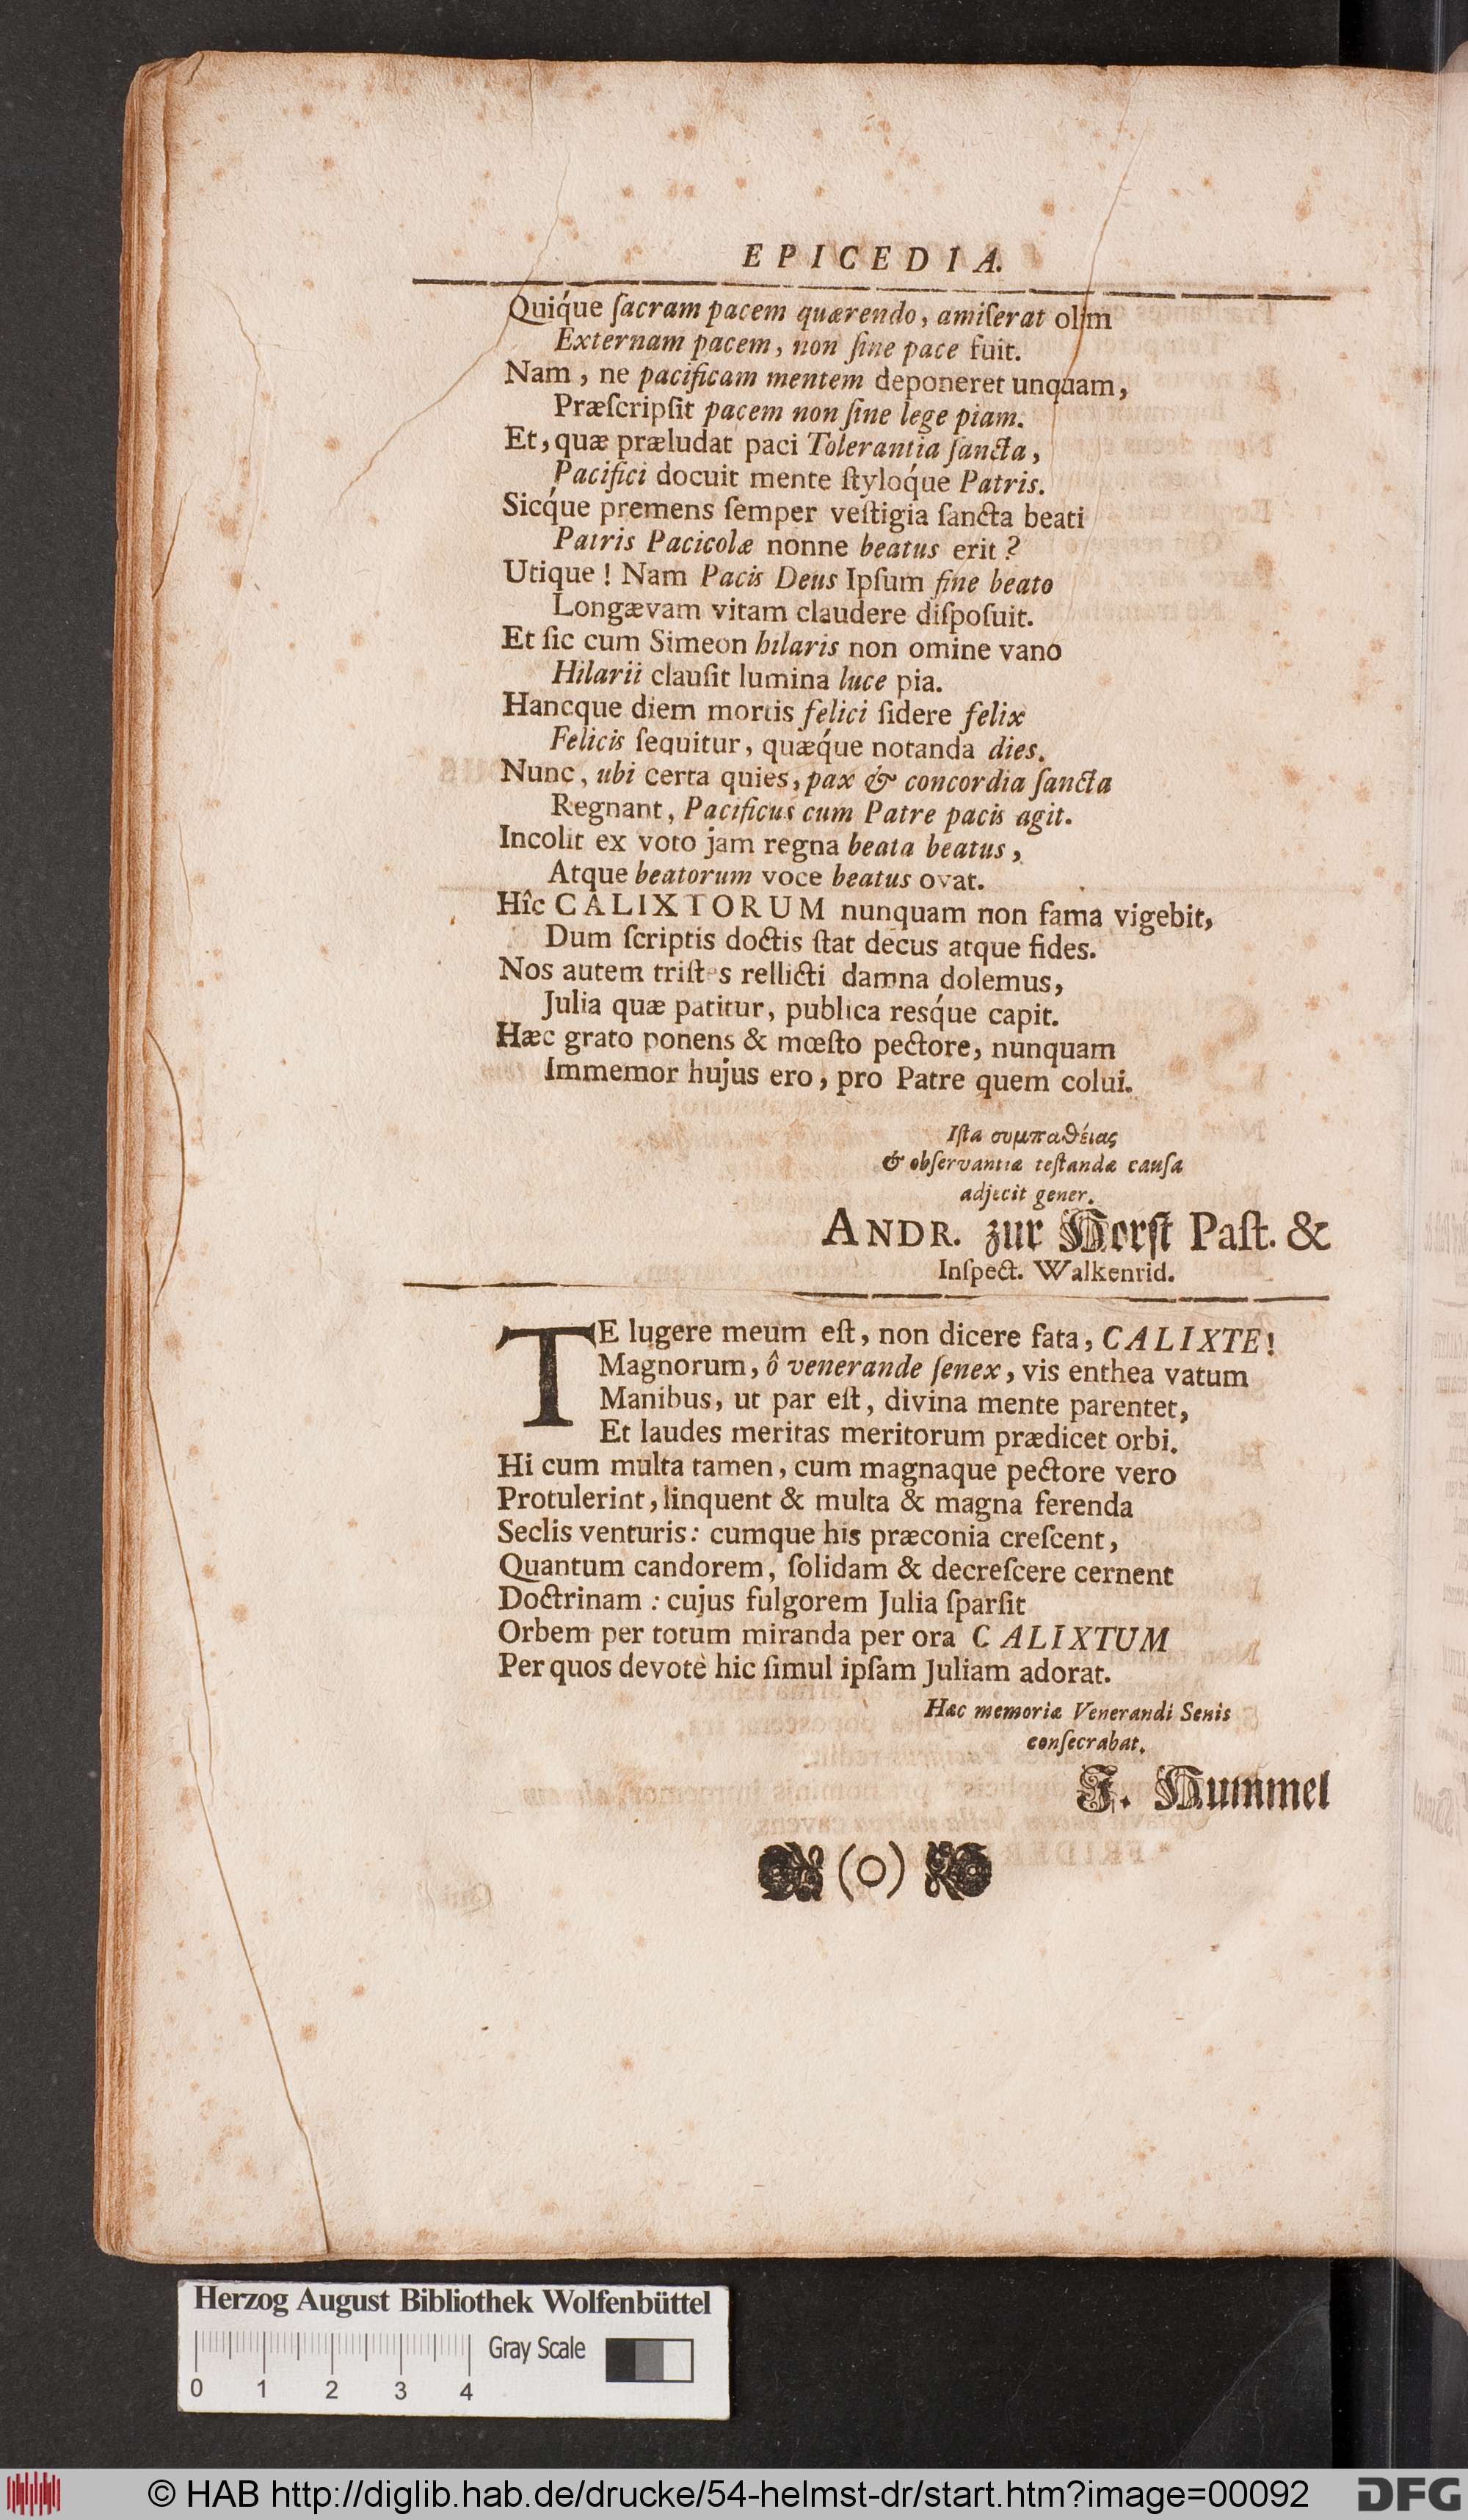 EPICEDIA.
Quiq́ue ſacram pacem quærendo, amiſerat olim
Externam pacem, non ſine pace fuit.
Nam, ne pacificam mentem deponeret unquam,
Præſcripſit pacem non ſine lege piam.
Et, quæ præludat paci Tolerantia ſancta,
Pacifici docuit mente ſtyloq́ue Patris.
Sicq́ue premens ſemper veſtigia ſancta beati
Patris Pacicolæ nonne beatus erit?
Utique! Nam Pacis Deus Ipſum fine beato
Longævam vitam claudere diſpoſuit.
Et ſic cum Simeon hilaris non omine vano
Hilarii clauſit lumina luce pia.
Hancque diem mortis felici ſidere felix
Felicis ſequitur, quæq́ue notanda dies.
Nunc, ubi certa quies, pax & concordia ſancta
Regnant, Pacificus cum Patre pacis agit.
Incolit ex voto jam regna beata beatus,
Atque beatorum voce beatus ovat.
Hîc CALIXTORUM nunquam non fama vigebit,
Dum ſcriptis doctis ſtat decus atque fides.
Nos autem triſtes rellicti damna dolemus,
Julia quæ patitur, publica resq́ue capit.
Hæc grato ponens & mœſto pectore, nunquam
Immemor hujus ero, pro Patre quem colui.
Iſta συμπαθείας
& obſervantiæ teſtandæ cauſa
adjecit gener.
ANDR. zur Horſt Paſt. &
Inſpect. Walkenrid.
TE lugere meum eſt, non dicere fata, CALIXTE!
Magnorum, ô venerande ſenex, vis enthea vatum
Manibus, ut par eſt, divina mente parentet,
Et laudes meritas meritorum prædicet orbi.
Hi cum multa tamen, cum magnaque pectore vero
Protulerint, linquent & multa & magna ferenda
Seclis venturis: cumque his præconia creſcent,
Quantum candorem, ſolidam & decreſcere cernent
Doctrinam: cujus fulgorem Julia ſparſit
Orbem per totum miranda per ora CALIXTUM
Per quos devotè hic ſimul ipſam Juliam adorat.
Hæc memoriæ Venerandi Senis
conſecrabat.
J. Hummel
(O)
Herzog August Bibliothek Wolfenbüttel
Gray Scale
0 1 2 3 4
© HAB http://diglib.hab.de/drucke/54-helmst-dr/start.htm?image=00092
DFG